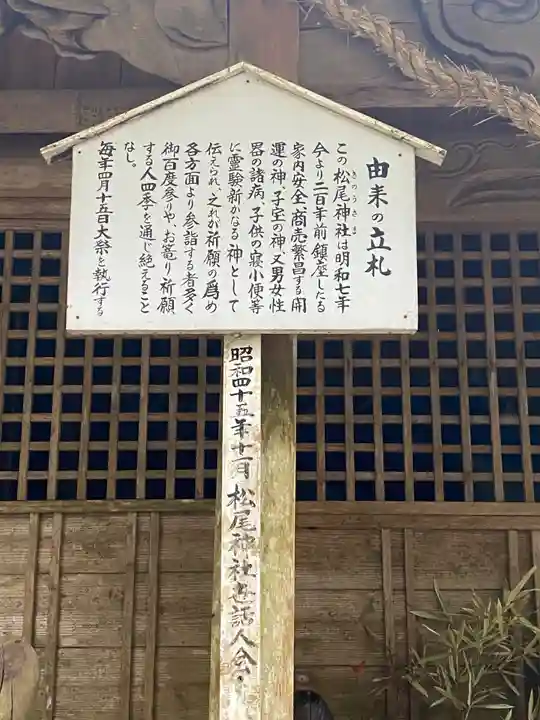 由来の立札
この松尾神社は明和七年
きのうさま
今より二百年前鎮座したる
家内安全、商売繁昌する開
運の神、子宝の神、又男女性
器の諸病、子供の寝小便等
に霊験新かなる神として
伝えられ、之れが祈願の為め
各方面より参詣する者多く
御百度参りや、お竜り祈願
する人四季を通じ絶えること
なし。
毎年四月十五日大祭を執行する
昭和四十五年十一月 松尾神社世話人会